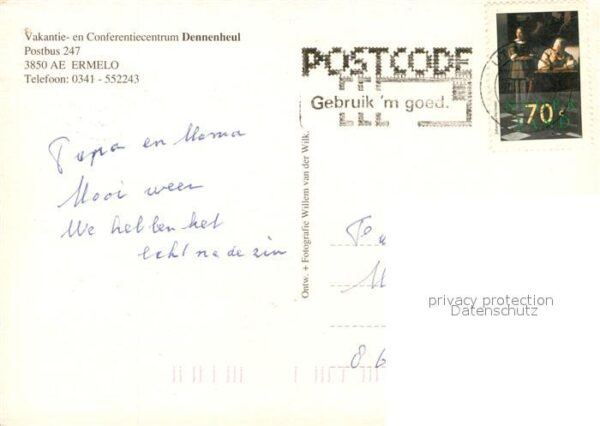 Vakantie- en Conferentiecentrum Dennenheul
Postbus 247
3850 AE ERMELO
Telefoon: 0341 - 552243
POSTCODE
Gebruik 'm goed.
70 c
Papa en Mama
Mooi weer
We hebben het
echt na de zin
Ontw. + Fotografie Willem van der Wilk.
86
privacy protection
Datenschutz